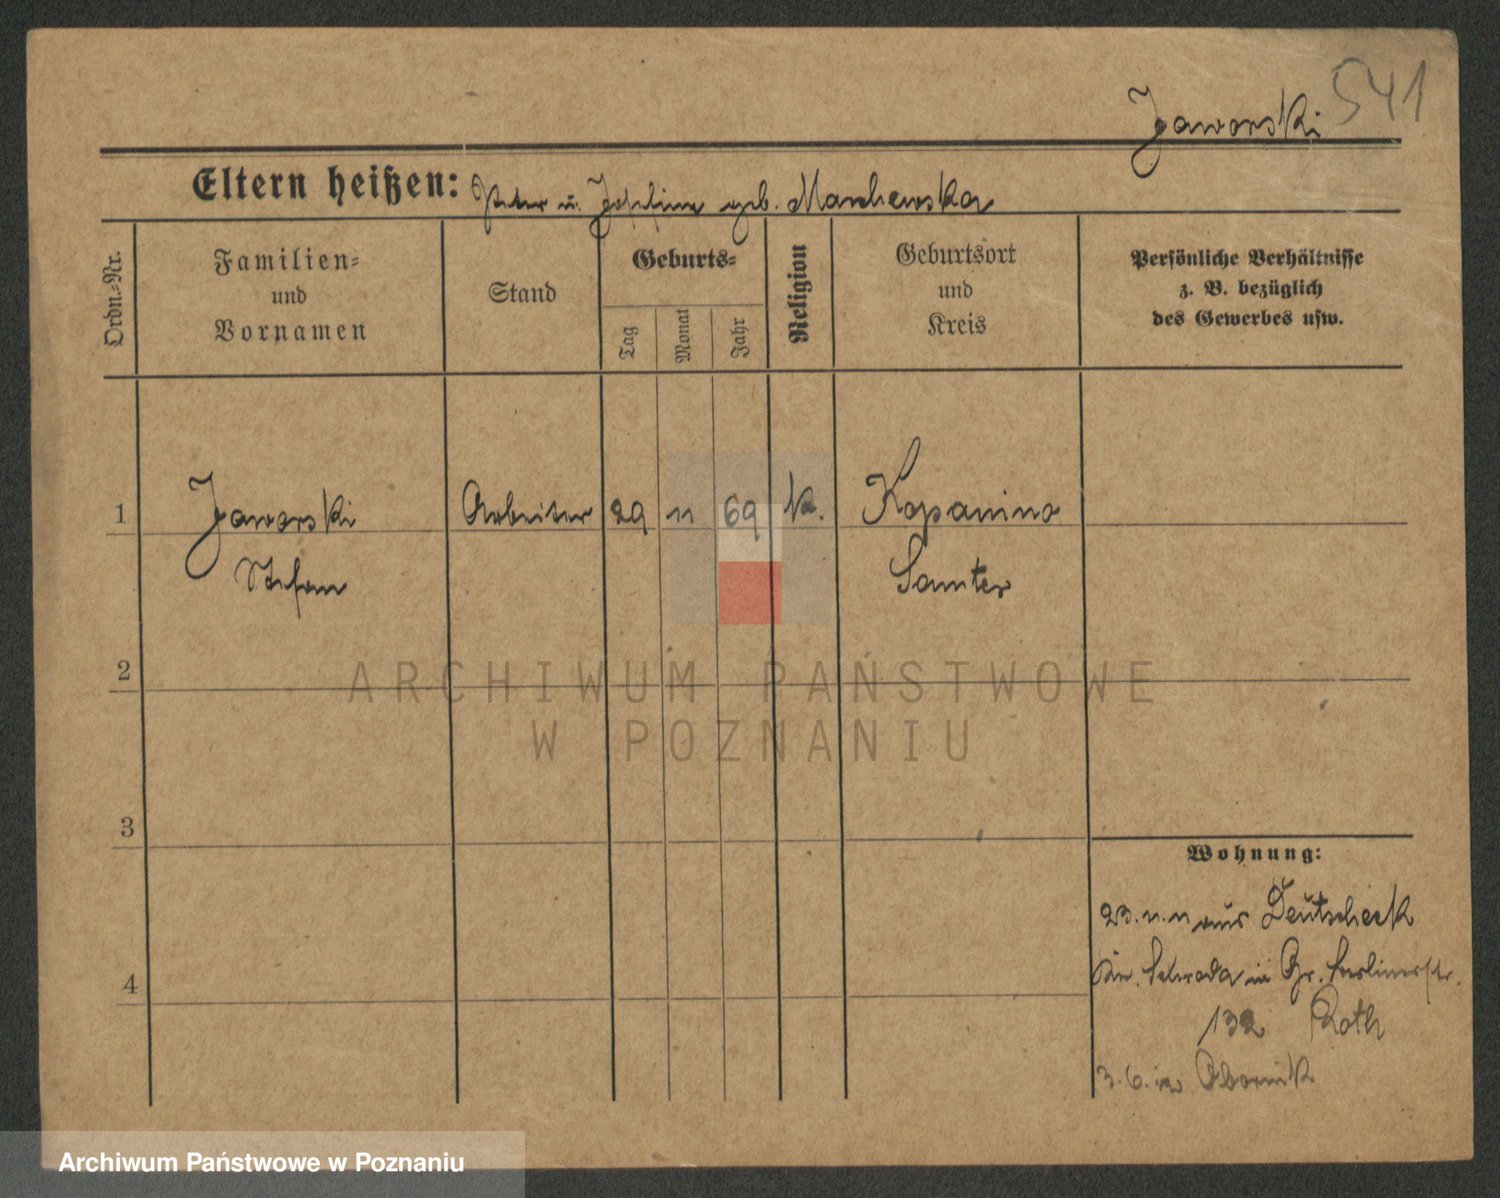 541
Jaworski
Eltern heißen: Peter u. Josefine geb. Marchewska
Ordn.-Nr.
Familien-
und
Vornamen
Stand
Geburts-
Tag
Monat
Jahr
Religion
Geburtsort
und
Kreis
Persönliche Verhältnisse
z. B. bezüglich
des Gewerbes usw.
1 Jaworski Arbeiter 29 11 69 k. Kopanino
Stefan Samter
2
ARCHIWUM PAŃSTWOWE
W POZNANIU
3
Wohnung:
23.11.11 aus Deutscheck
Kr. Schroda in Gr. Berlinerstr.
4
132 Roth
3.6. Obornik
Archiwum Państwowe w Poznaniu